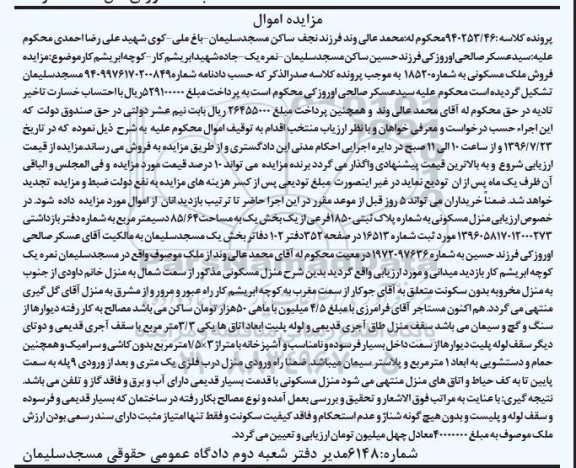 مزایده اموال
پرونده کلاسه :۹۴۰۲۵۳/۴۶محکوم له:محمد عالی وند فرزند نجف ساکن مسجدسلیمان-باغ ملی-کوی شهید علی رضا احمدی محکوم
علیه:سید عسکر صالحی اوروز کی فرزند حسین ساکن مسجدسلیمان-نمره یک-جاده شهید ابریشم کار-کوچه ابریشم کار موضوع:مزایده
فروش ملک مسکونی به شماره ۱۸۵۲۰ به موجب پرونده کلاسه صدرالذکر که حسب دادنامه شماره۹۴۰۹۹۷۶۱۷۰۲۰۰۸۴۹ مسجدسلیمان
تشکیل گردیده است محکوم علیه سید عسکر صالحی اوروز کی محکوم است به پرداخت مبلغ ۵۲۹۱۰۰۰۰۰ریال با احتساب خسارت تاخیر
تادیه در حق محکوم له آقای محمد عالی وند و همچنین پرداخت مبلغ ۲۶۴۵۵۰۰۰ ریال بابت نیم عشر دولتی در حق صندوق دولت که
این اجراء حسب درخواست و معرفی خواهان و با نظر ارزیاب منتخب اقدام به توقیف اموال محکوم علیه به شرح ذیل نموده که در تاریخ
۱۳۹۶/۷/۲۳ و از ساعت ۱۰ الی ۱۱ صبح در دایره اجرایی احکام مدنی این دادگستری و از طریق مزایده به فروش می رساند مزایده از قیمت
ارزیابی شروع و به بالاترین قیمت پیشنهادی واگذار می گردد برنده مزایده می تواند ۱۰ درصد قیمت مورد مزایده و فی المجلس و الباقی
آن ظرف یک ماه پس از ان تودیع نماید در غیر اینصورت مبلغ تودیعی پس از کسر هزینه های مزایده به نفع دولت ضبط و مزایده تجدید
خواهد شد. ضمناً خریداران می تواند ۵ روز قبل از موعد مقرر در این اجرا حاضر تا ترتیب بازدید انان از اموال مورد مزایده داده شود. در
خصوص ارزیابی منزل مسکونی به شماره پلاک ثبتی ۱۸۵۰فرعی از یک بخش یک به مساحت ۸۵/۶۴ دسیمتر مربع به شماره دفتر بازداشتی
۱۳۹۶۰۵۸۱۷۰۱۲۰۰۰۲۷۳ مورد ثبت شماره ۱۶۵۱۳ در صفحه ۳۵۲دفتر ۱۰۲ دفاتر بخش یک مسجدسلیمان به مالکیت آقای عسکر صالحی
اوروز کی فرزند حسین به شماره ۱۹۷۲۰۹۷۶۳۶ در معیت محکوم له آقای محمد عالی وند از ملک موصوف واقع در مسجدسلیمان نمره یک
کوچه ابریشم کار بازدید میدانی و مورد ارزیابی واقع گردید بدین شرح منزل مسکونی مذکور از سمت شمال به منزل خانم داودی از جنوب
به منزل مخروبه بدون سکونت متعلق به آقای جوکار از سمت مغرب به کوچه ابریشم کار راه عبور و مرور و از مشرق به منزل آقای گل گیری
منتهی می گردد. هم اکنون مستاجر آقای فرامرزی با مبلغ ۴/۵ میلیون با ماهی ۵۰هزار تومان ساکن می باشد مصالح به کار رفته دیوارها از
سنگ و گچ و سیمان می باشد سقف منزل طاق آجری قدیمی و لوله پلیت ابعاد اتاق ها یکی ۴×۳ متر مربع با سقف آجری قدیمی و دو تای
دیگر سقف لوله پلیت دیوارها از سمت داخل بسیار فرسوده و نامناسب و آشپزخانه با متراژ ۳×۱/۵ متر مربع بدون کاشی و سرامیک و همچنین
حمام و دستشویی به ابعاد ۱ متر مربع و پلاستر سیمان میباشد ضمنا راه ورودی منزل درب فلزی یک متری و بعد از ورودی ۹ پله به سمت
پایین تا به کف حیاط و اتاق های منزل منتهی می شود منزل مسکونی با قدمت بسیار قدیمی دارای آب و برق و فاقد گاز و تلفن می باشد.
نتیجه گیری: با عنایت به مراتب فوق الاشعار و تحقیق و بررسی بعمل آمده و نوع مصالح بکار رفته در ساختمان که بسیار قدیمی و فرسوده
و سقف لوله و پلیست و بدون هیچ گونه شناژ و عدم استحکام و فاقد کیفیت سکونت و فقط تنها امتیاز مثبت دارای سند رسمی بودن ارزش
ملک موصوف به مبلغ ۴۰۰۰۰۰۰۰۰معادل چهل میلیون تومان ارزیابی و تعیین می گردد.
شماره:۶۱۴۸مدیر دفتر شعبه دوم دادگاه عمومی حقوقی مسجدسلیمان